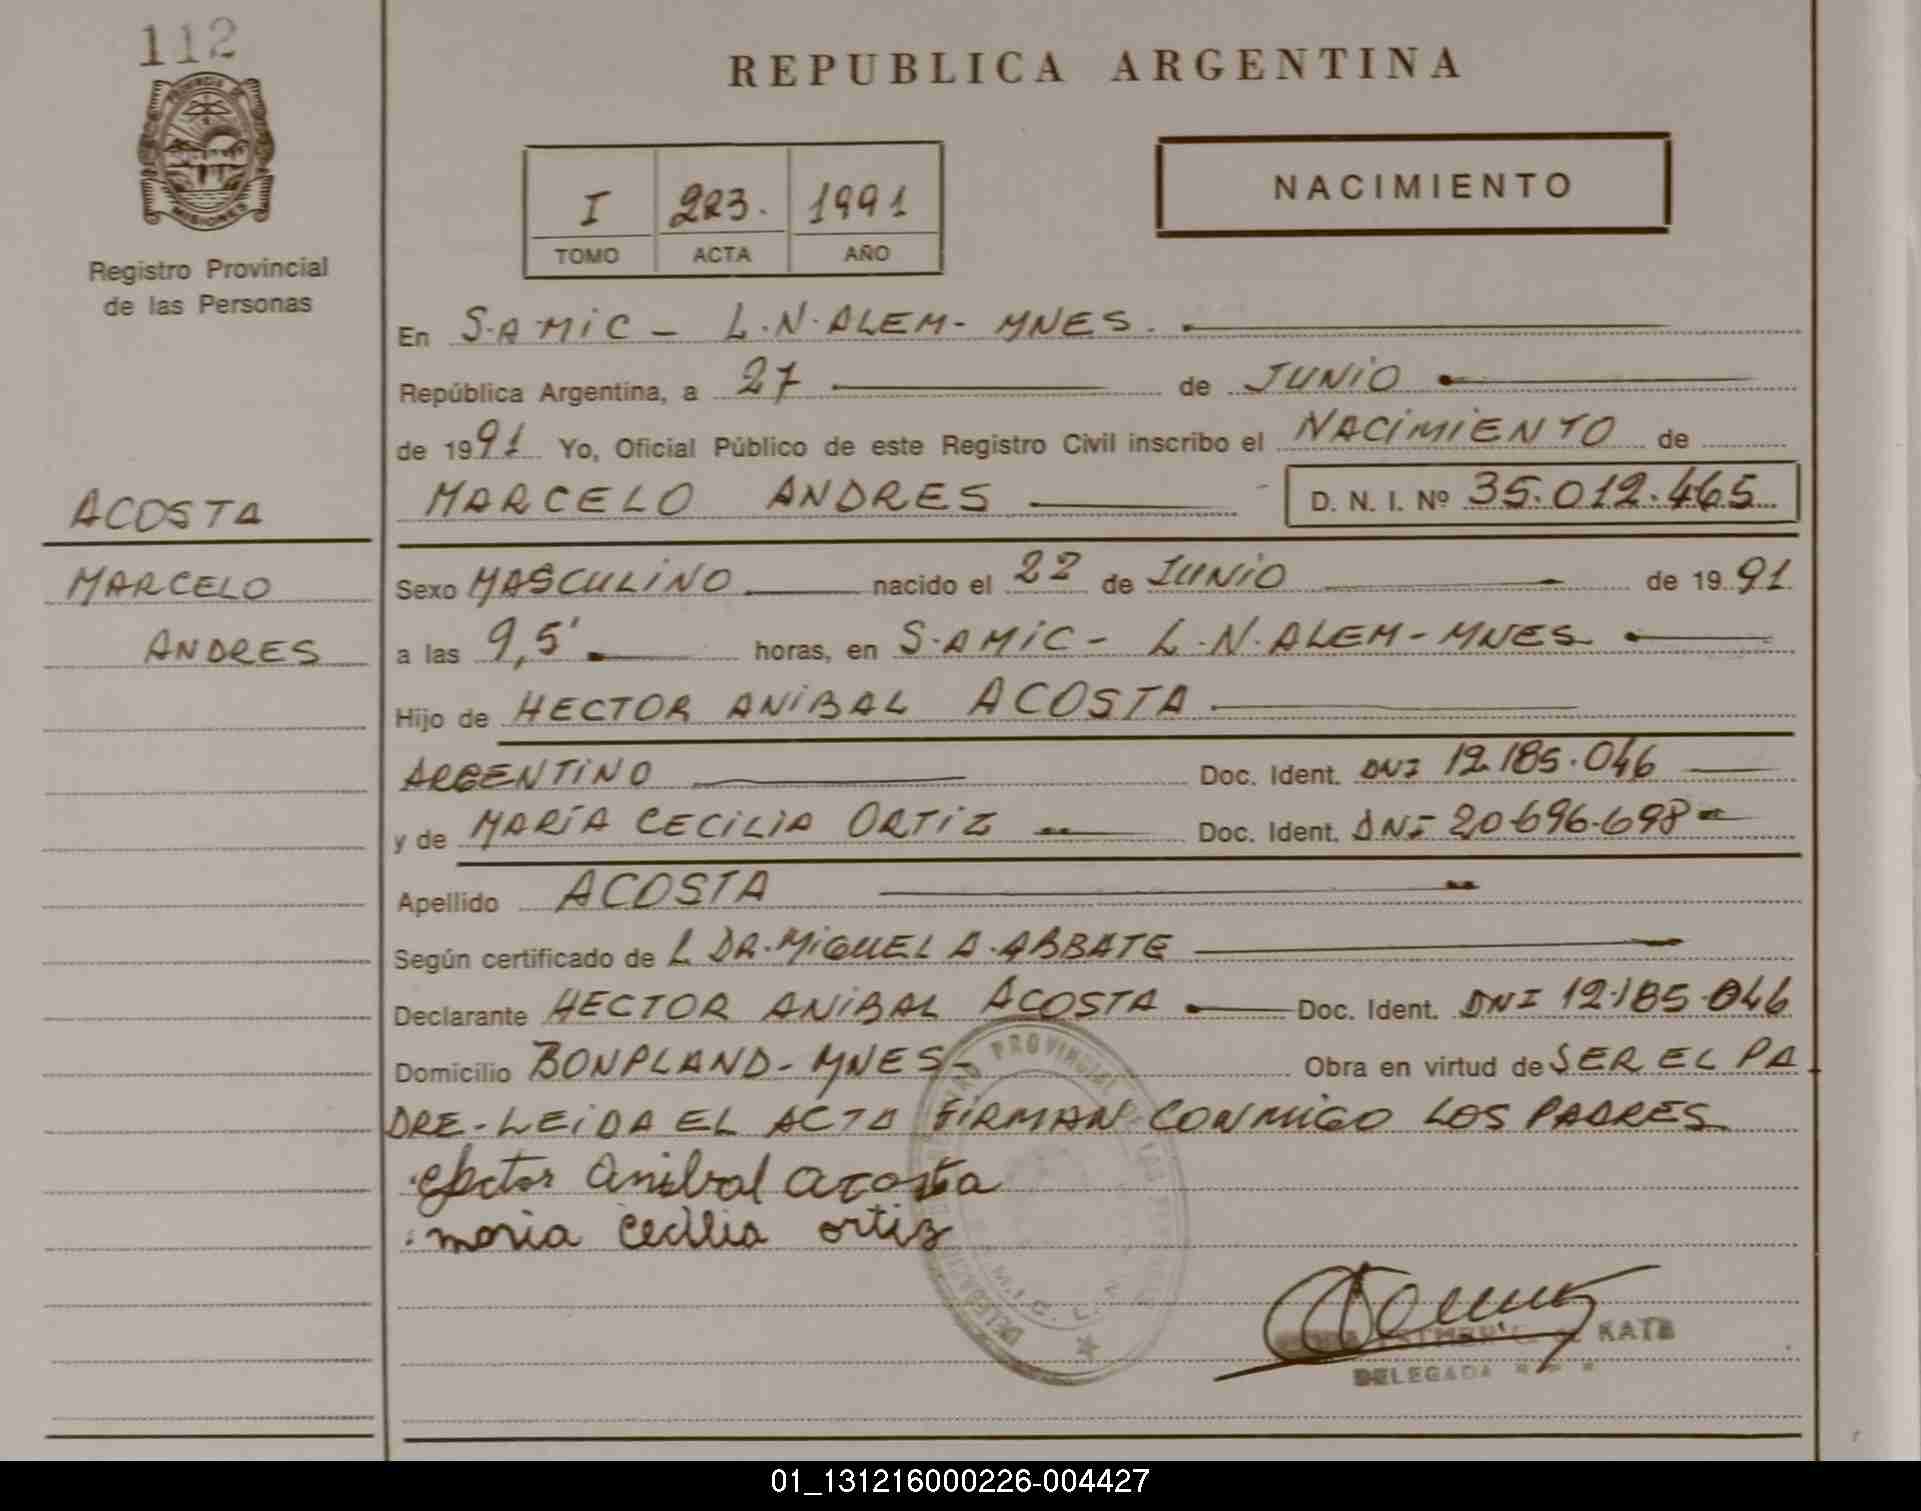 112
PROVINCIA DE
MISIONES
Registro Provincial
de las Personas
ACOSTA
MARCELO
ANDRES
REPUBLICA ARGENTINA
I 223. 1991
TOMO ACTA AÑO
NACIMIENTO
En S.A.MIC - L.N.ALEM - MNES.
República Argentina, a 27 de JUNIO
de 1991 Yo, Oficial Público de este Registro Civil inscribo el NACIMIENTO de
MARCELO ANDRES D. N. I. Nº 35.012.465
Sexo MASCULINO nacido el 22 de JUNIO de 1991
a las 9,5' horas, en S.AMIC - L.N.ALEM - MNES
Hijo de HECTOR ANIBAL ACOSTA
ARGENTINO Doc. Ident. DNI 12.185.046
y de MARÍA CECILIA ORTIZ Doc. Ident. DNI 20.696.698
Apellido ACOSTA
Según certificado de L DR. MIGUEL A. ABBATE
Declarante HECTOR ANIBAL ACOSTA Doc. Ident. DNI 12.185.046
Domicilio BONPLAND - MNES - Obra en virtud de SER EL PA
DRE - LEIDA EL ACTA FIRMAN CONMIGO LOS PADRES
Hector Anibal acosta
maria cecilia ortiz
PROVINCIAL
KATZ
DELEGADA
01_131216000226-004427